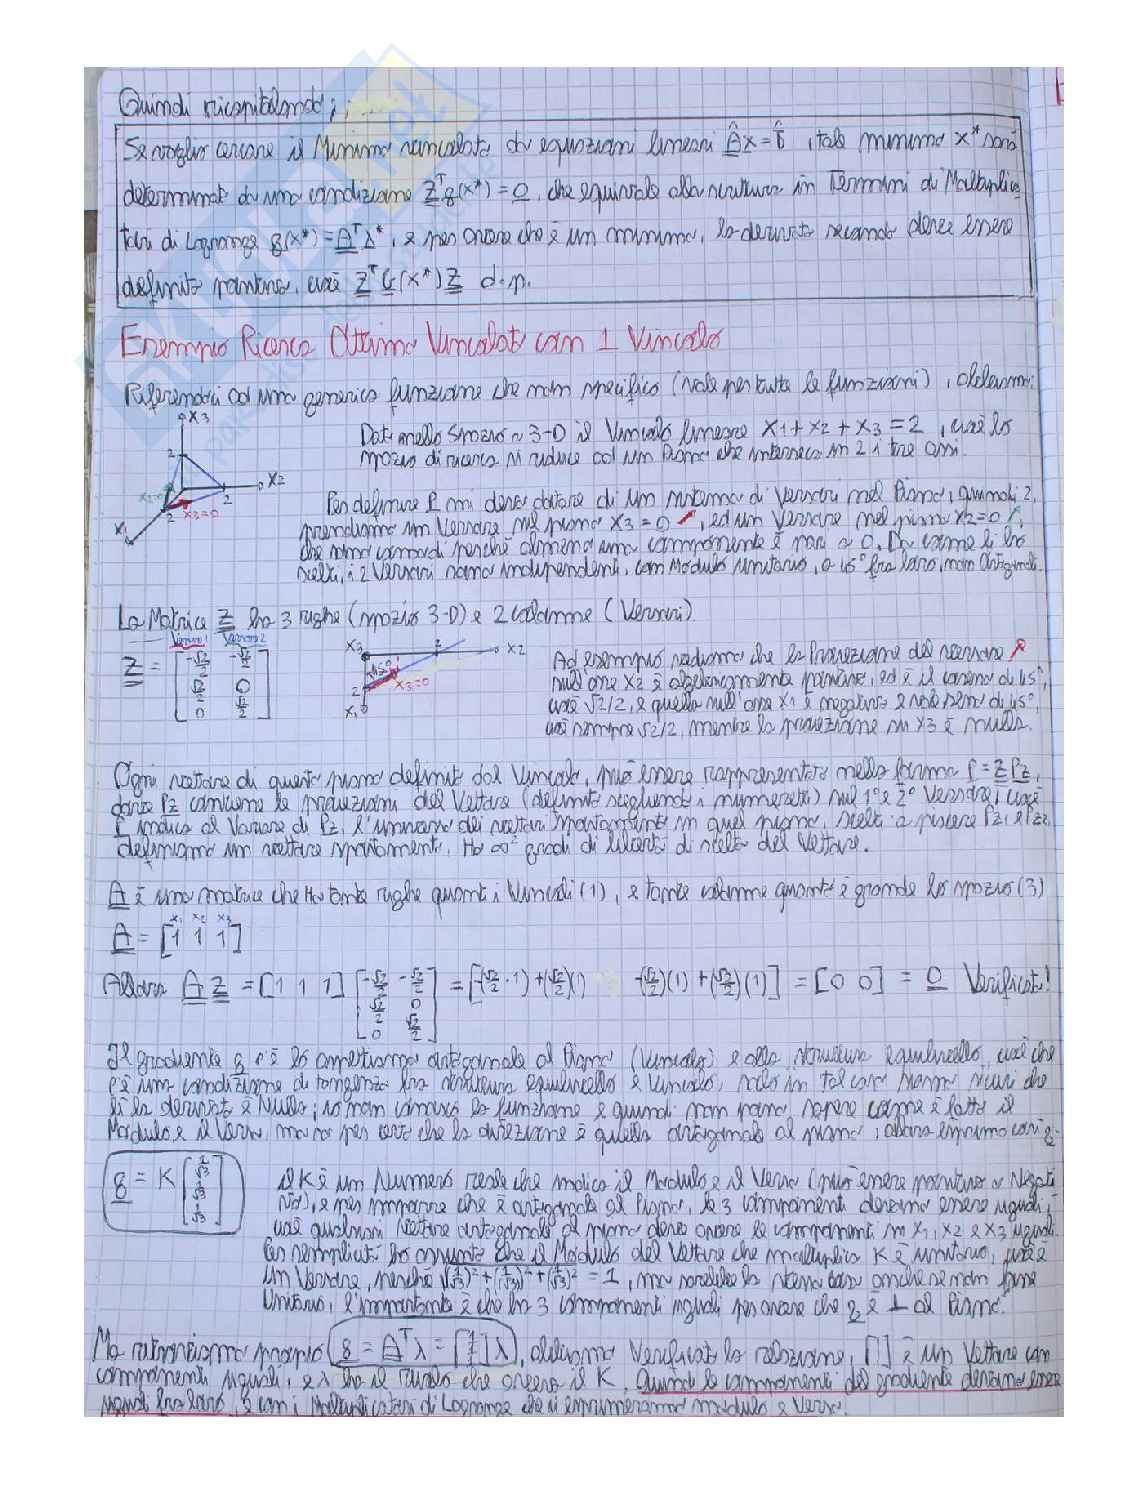 Quindi ricapitolando: ...
Se voglio cercare il Minimo vincolato da equazioni lineari Âx = b̂, tale minimo x* sarà
determinato da una condizione Zᵀg(x*) = 0, che equivale alla scrittura in Termini di Moltiplica
tori di Lagrange g(x*) = Âᵀλ*, e per essere che è un minimo, la derivata seconda deve essere
definita positiva, cioè ZᵀG(x*)Z d.p.
Esempio Ricerca Ottimo Vincolato con 1 Vincolo
Riferendoci ad una generica funzione che non specifico (vale per tutte le funzioni), abbiamo:
Dato nello Spazio a 3-D il Vincolo lineare x1 + x2 + x3 = 2, cioè lo
spazio di ricerca si riduce ad un Piano che interseca in 2 i tre assi.
x3
2
x2
2
x2=0
x3=0
2
x1
Per definire P mi devo dotare di un sistema di Versori nel Piano, quindi 2,
prendiamo un Versore nel piano x3 = 0, ed un Versore nel piano x2 = 0,
che sono comodi perché almeno una componente è pari a 0. Da come li ho
scelti, i 2 Versori sono indipendenti, con Modulo unitario, a 45° fra loro, non Ortogonali.
La Matrice Z ha 3 righe (spazio 3-D) e 2 colonne (Versori)
Versore 1 Versore 2
Z = [ -√2/2 -√2/2
√2/2 0
0 √2/2 ]
x3 2 x2
45°
2 x3=0
x1
Ad esempio vediamo che la Proiezione del versore
sull'asse x2 è positiva, ed è il coseno di 45°,
cioè √2/2, e quella sull'asse x1 è negativa e vale seno di 45°,
cioè sempre √2/2, mentre la proiezione su x3 è nulla.
Ogni vettore di questo piano definito dal Vincolo, può essere rappresentato nella forma P = Z Pz,
dove Pz contiene le proiezioni del Vettore (definito scegliendo i numeretti) sul 1° e 2° Versore, cioè
P indica al Variare di Pz, l'universo dei vettori spostamento in quel piano, scelti a piacere Pz1 e Pz2
definiamo un vettore spostamento. Ho ∞² gradi di libertà di scelta del Vettore.
A è una matrice che ha tante righe quanti i Vincoli (1), e tante colonne quanto è grande lo spazio (3)
x1 x2 x3
A = [1 1 1]
Allora A Z = [1 1 1] [ -√2/2 -√2/2
√2/2 0
0 √2/2 ] = [-(√2/2 · 1) + (√2/2)(1) -(√2/2)(1) + (√2/2)(1)] = [0 0] = 0 Verificato!
Il gradiente g ce lo aspettiamo ortogonale al Piano (Vincolo) e alla struttura equilivello, cioè che
c'è una condizione di tangenza fra struttura equilivello e Vincolo, solo in tal caso siamo sicuri che
lì la derivata è Nulla; io non conosco la funzione e quindi non posso sapere come è fatto il
Modulo e il Verso, ma so per certo che la direzione è quella ortogonale al piano, allora esprimo così g:
g = K [ 1/√3
1/√3
1/√3 ]
il K è un Numero reale che indica il Modulo e il Verso (può essere positivo o Negati
vo), e per imporre che è ortogonale al Piano, le 3 componenti devono essere uguali,
cioè qualsiasi Vettore ortogonale al piano deve avere le componenti in x1, x2 e x3 uguali.
Per semplicità ho assunto che il Modulo del Vettore che moltiplica K è unitario, cioè è
un Versore, perché √(1/√3)² + (1/√3)² + (1/√3)² = 1, ma sarebbe la stessa cosa anche se non fosse
Unitario, l'importante è che ha 3 componenti uguali per avere che g è ⊥ al Piano.
Ma ritroviamo proprio g = Aᵀλ = [1 1 1] λ, abbiamo Verificato la relazione, [ ] è un Vettore con
componenti uguali, e λ ha il ruolo che aveva il K. Quindi le componenti del gradiente devono essere
uguali fra loro, e con i Moltiplicatori di Lagrange che ci esprimeranno modulo e Verso.